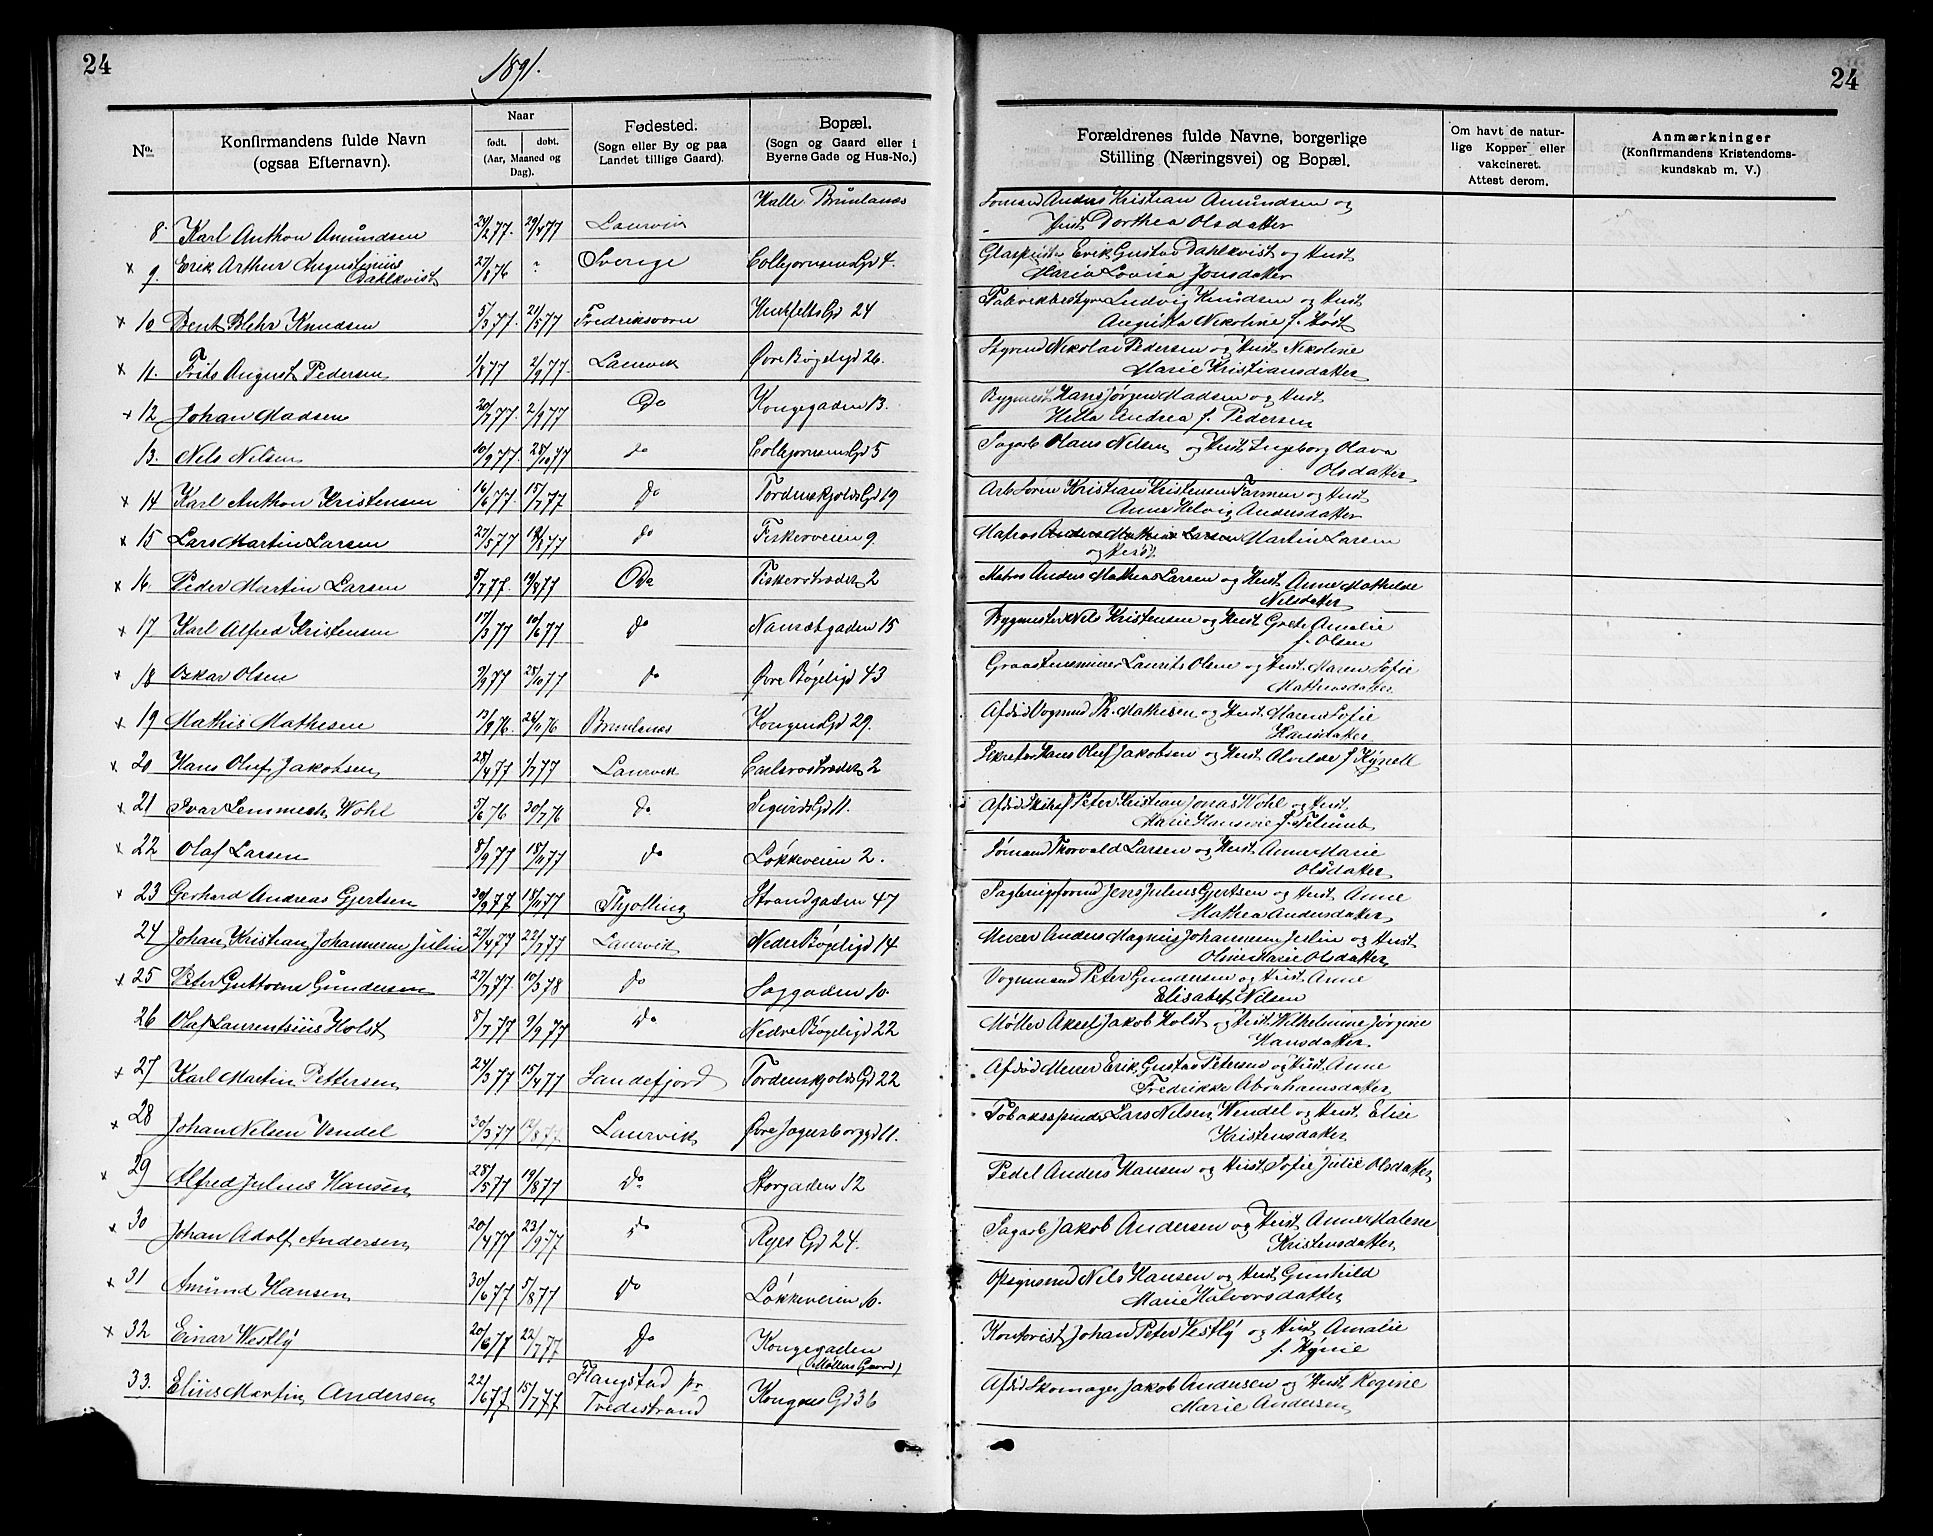 24
1891.
24
No.
Konfirmandens fulde Navn
(ogsaa Efternavn).
Naar
født.
døbt.
(Aar, Maaned og
Dag).
Fødested.
(Sogn eller By og paa
Landet tillige Gaard).
Bopæl.
(Sogn og Gaard eller i
Byerne Gade og Hus-No.)
Forældrenes fulde Navne, borgerlige
Stilling (Næringsvei) og Bopæl.
Om havt de natur-
lige Kopper eller
vakcineret.
Attest derom.
Anmærkninger
(Konfirmandens Kristendoms-
kundskab m. V.)
8. Karl Anthon Amundsen 24/2 77. 29/4 77 Laurvik Halle Brunlanes Sømand Anders Kristian Amundsen og
Hust Dorthea Olsdatter
x 9. Erik Arthur Augustinius
Dahlkvist 27/8 76 - Sverige Colbjørnsens Gd 4. Erik Gustav Dahlkvist og Hust
Maria Lovisa Jonsdatter
x 10 Bent Blehr Knudsen 5/3 77. 21/5 77 Fredriksværn Gd 24 Fabrikbestyrer Ludvig Knudsen og Hust
Augusta Nikoline f. Høst
x 11. Frits August Pedersen 1/8 77 2/9 77 Laurvik Øvre Bøgeligd 26. Styrmd Nikolai Pedersen og Hust Nikoline
Marie Kristiansdatter
x 12 Johan Madsen 20/7 77. 2/9 77 Do Kongegaden 13. Bygmest Hans Jørgen Madsen og Hust
Hella Andrea f. Pedersen
13. Nels Nilsen 10/9 77 28/10 77 do Colbjørnsens Gd 5 Sagarb Olaus Nilsen og Hust Ingeborg Olava
Olsdatter
x 14 Karl Anthon Kristensen 16/6 77. 15/7 77 Do Tordenskjolds Gd 19 Arb Søren Kristian Kristensen Farmen og Hust
Anne Helvig Andersdatter
x 15 Lars Martin Larsen 27/5 77 19/8 77 do Fiskerveien 9. Matros Anders Mathias Larsen Martin Larsen
og Hust
x 16. Peder Martin Larsen 5/7 77. 19/8 77 Do Fiskerstrædet 2 Matros Anders Mathias Larsen og Hust Anne Mathilde
Nilsdatter
x 17 Karl Alfred Kristensen 17/3 77 10/6 77 do Nansetgaden 15 Bygmester Nils Kristensen og Hust Grete Amalie
f. Olsen
x 18 Oskar Olsen 9/9 77 25/11 77 do Øvre Bøgeligd 43 Graastensminer Laurits Olsen og Hust Maren Sofie
Mathiasdatter
x 19 Mathis Mathesen 13/8 76. 26/11 76 Brunlanes Kongens Gd 29. Afdød Vognmd Th. Mathisen og Hust Maren Sofie
Hansdatter
x 20 Hans Oluf Jakobsen 28/4 77 1/7 77 Laurvik Carlsrostrædet 2 Hans Oluf Jakobsen og Hust Alvilde f.
x 21 Ivar Lemmech Wohl 5/6 76 30/7 76 do Sigurds Gd 11. Afdød Peter Kristian Jonas Wohl og Hust
Marie Hansine f.
x 22 Olaf Larsen 8/9 77 18/11 77 do Løkkeveien 2. Sømand Thorvald Larsen og Hust Anne Marie
Olsdatter
x 23 Gerhard Andreas Gjertsen 30/9 77 18/11 77 Thjølling Strandgaden 47 Jens Julius Gjertsen og Hust Anne
Mathea Andersdatter
24 Johan Kristian Johannesen Julin 27/4 77 22/7 77 Laurvik Nedre Bøgeligd 14 Murer Anders Magnus Johannesen Julin og Hust
Oline Marie Olsdatter
x 25 Peter Guttorm Gundersen 27/7 77. 10/3 78 do Saggaden 10. Vognmand Peter Gundersen og Hust Anne
Elisabet Nilsen
26 Olaf Laurentsius Holst 5/7 77 9/9 77 do Nedre Bøgeligd 22 Møller Aksel Jakob Holst og Hust Wilhelmine Jørgine
Hansdatter
x 27 Karl Martin Pettersen 24/3 77 15/4 77 Sandefjord Tordenskjolds Gd 22 Afdød Murer Erik Gustav Petersen og Hust Anne
Fredrikke Abrahamsdatter
x 28 Johan Nilsen Vendel 30/3 77 12/8 77. Laurvik Øvre Jegersborggd 11. Tobakksspinder Lars Nilsen Wendel og Hust. Elise
Kristensdatter
x 29 Alfred Julius Hansen 28/5 77 19/8 77 Do Storgaden 12 Pedel Anders Hansen og Hust Sofie Julie Olsdatter
x 30 Johan Adolf Andersen 20/4 77 23/9 77 do Ryes Gd 24. Sagarb Jakob Andersen og Hust Anne Malene
Kristensdatter
x 31 Amund Hansen 30/6 77 5/8 77 Do Løkkeveien 10. Opsynsmd Nils Hansen og Hust Gunhild
Marie Halvorsdatter
x 32 Einar Westly 20/6 77 22/7 77 Do Kongegaden
(Møllers Gaard) Kontorist Johan Peter Vestly og Hust Amalie
f.
33. Elius Martin Andersen 22/6 77 15/7 77 Flangstad pr
Tvedestrand Kongens Gd 36 Afdød Skomager Jakob Andersen og Hust Regine
Marie Andersen